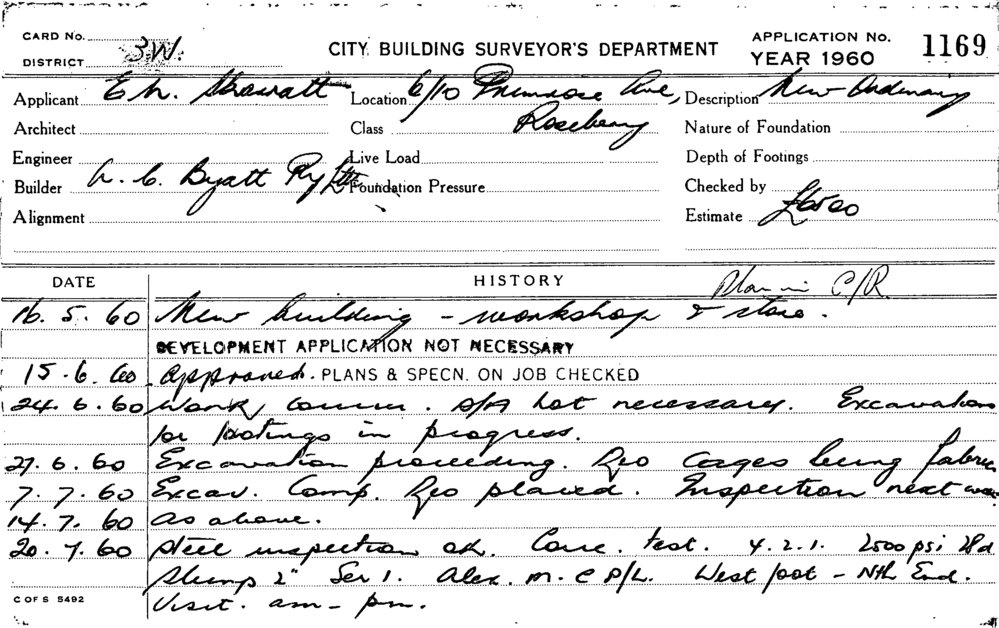 CARD No.
DISTRICT 3W.
CITY BUILDING SURVEYOR'S DEPARTMENT
APPLICATION No. 1169
YEAR 1960
Applicant E. N. Location 6/10 Primrose Ave, Description New Ordinary
Architect Class Rosebery Nature of Foundation
Engineer Live Load Depth of Footings
Builder A. C. Byatt Pty Ltd Foundation Pressure Checked by
Alignment Estimate £6500
DATE HISTORY Plan in C/R.
16. 5. 60 New building - workshop & store.
DEVELOPMENT APPLICATION NOT NECESSARY
15. 6. 60 Approved. PLANS & SPECN. ON JOB CHECKED
24. 6. 60 Work comm. D/A not necessary. Excavations
for footings in progress.
27. 6. 60 Excavation proceeding. Reo cages being fabric
7. 7. 60 Excav. Comp. Reo placed. Inspection next week
14. 7. 60 As above.
20. 7. 60 Steel inspection ok. Conc. test. 4.2.1. 2500 psi 28d
Slump 2" Ser 1. Alex. M. C P/L. West foot - Nth End.
C OF S 5492 Visit. am - pm.